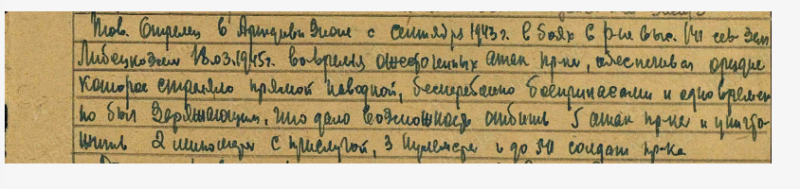 Тов. Стрелец в Артдивизионе с сентября 1943г. в боях в р-не выс. 141 сев. зап
18.03.1945г. во время ожесточенных атак пр-ка, обеспечивал орудие
которое стреляло прямой наводкой, бесперебойно боеприпасами и одновремен
но был Заряжающим, что дало возможность отбить 5 атак пр-ка и уничто-
жить 2 миномета с прислугой, 3 пулемета и до 50 солдат пр-ка